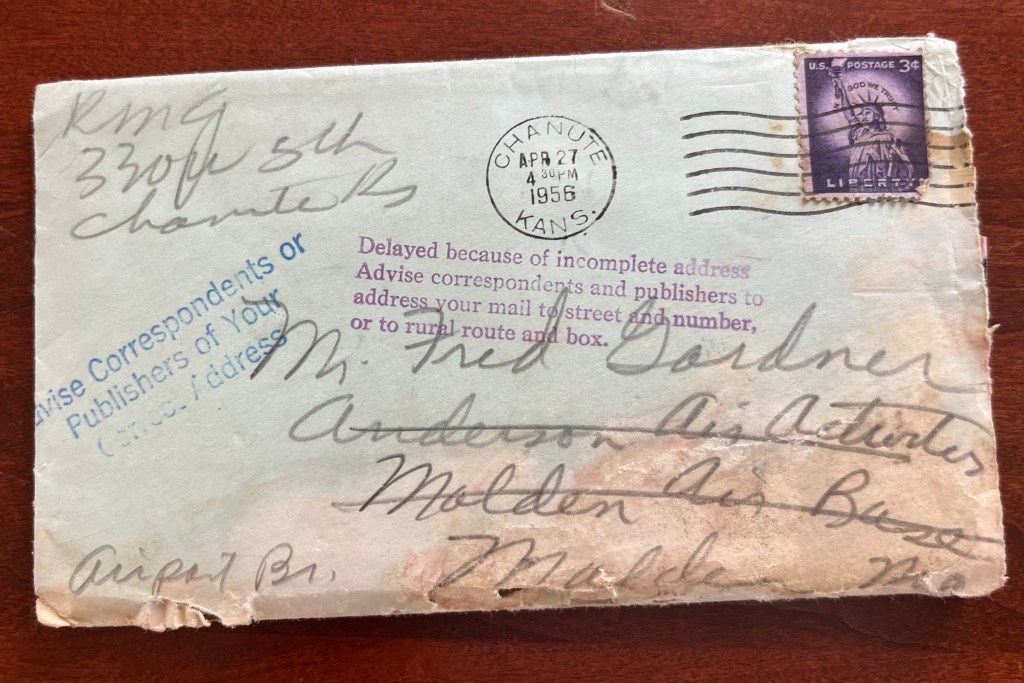 RMG
330 W 5th
Chanute Ks
CHANUTE
APR 27
4 30 PM
1956
KANS.
U.S. POSTAGE 3¢
IN GOD WE TRUST
LIBERTY
Delayed because of incomplete address
Advise correspondents and publishers to
address your mail to street and number,
or to rural route and box.
Advise Correspondents or
Publishers of Your
Address
Mr. Fred Gardner
Anderson Air Activites
Malden Air Base
Malden Mo
Airport Br.